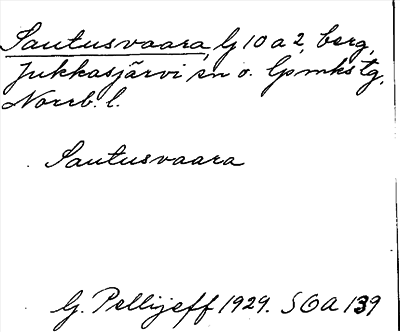 Sautusvaara, G 10 a 2, berg,
Jukkasjärvi sn o. Gpmkstg,
Norrb. l.
Sautusvaara
G. Pellijeff 1929. SOA 139